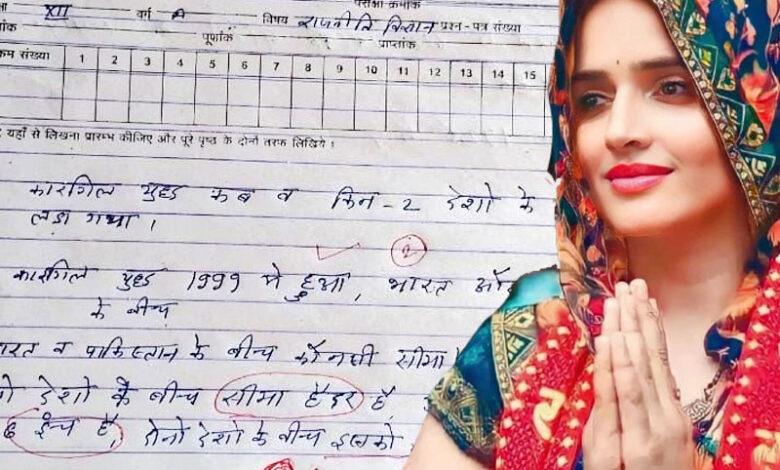 परीक्षा क्रमांक
XII वर्ग A विषय राजनीति विज्ञान प्रश्न-पत्र संख्या
पूर्णांक प्राप्तांक
संख्या 1 2 3 4 5 6 7 8 9 10 11 12 13 14 15
यहाँ से लिखना प्रारम्भ कीजिए और पूरे पृष्ठ के दोनों तरफ लिखिये।
कारगिल युद्ध कब व किन-2 देशो के
लडा गया।
2
कारगिल युद्ध 1999 मे हुआ, भारत
के बीच
व पाकिस्तान के बीच कौनसी सीमा
देशो के बीच सीमा हैदर है
6 इंच है, दोनो देशो के बीच इसको